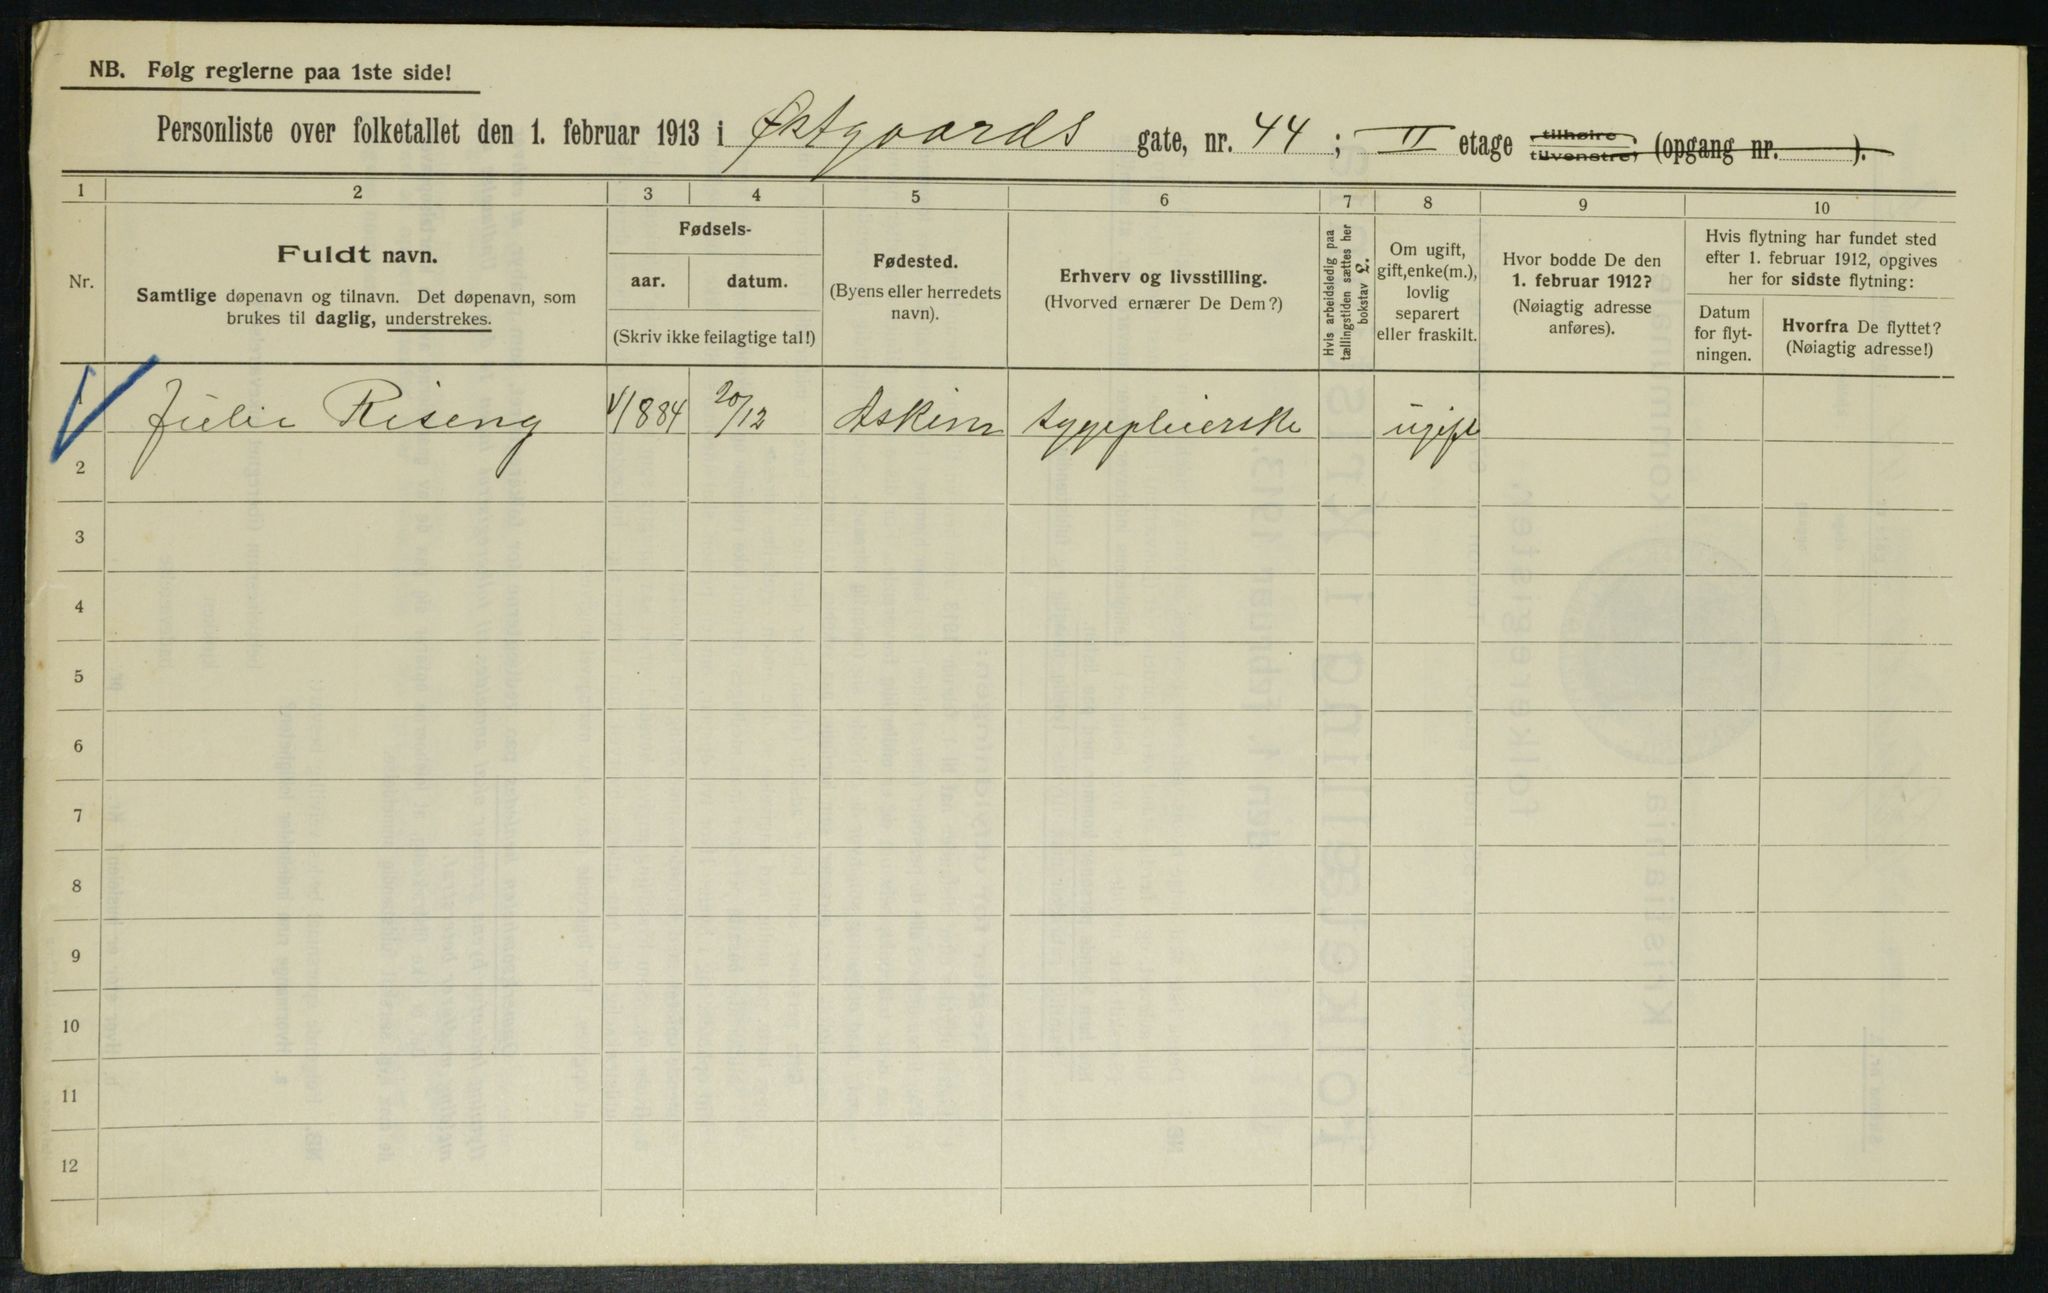 NB. Følg reglerne paa 1ste side!
Personliste over folketallet den 1. februar 1913 i Østgaards gate, nr. 44 ; II etage tilhøire tilvenstre, (opgang nr. ).
1 2 3 4 5 6 7 8 9 10
Nr.
Fuldt navn.
Samtlige døpenavn og tilnavn. Det døpenavn, som
brukes til daglig, understrekes.
Fødsels-
aar. datum.
(Skriv ikke feilagtige tal!)
Fødested.
(Byens eller herredets
navn).
Erhverv og livsstilling.
(Hvorved ernærer De Dem?)
Hvis arbeidsledig paa
tællingstiden sættes her
bokstav L.
Om ugift,
gift, enke(m.),
lovlig
separert
eller fraskilt.
Hvor bodde De den
1. februar 1912?
(Nøiagtig adresse
anføres).
Hvis flytning har fundet sted
efter 1. februar 1912, opgives
her for sidste flytning:
Datum
for flyt-
ningen.
Hvorfra De flyttet?
(Nøiagtig adresse!)
1 Julie Riseng 1884 20/12 Askim sygepleierske ugift
2
3
4
5
6
7
8
9
10
11
12